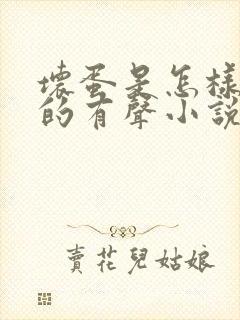 壞蛋是怎樣
的有聲小說
賣花兒姑娘